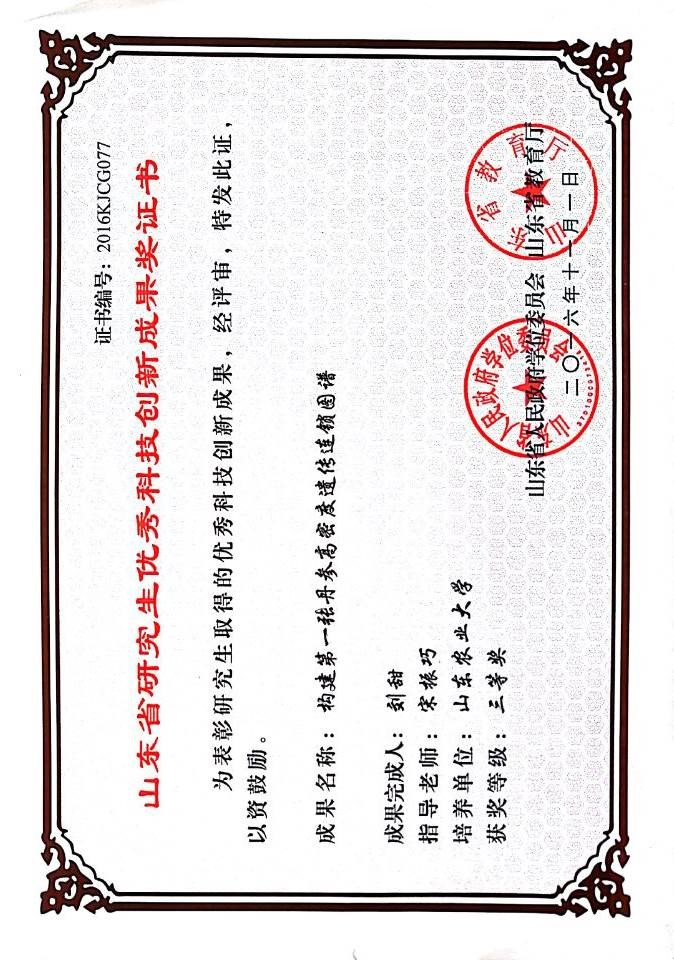 证书编号：2016KJCG077
山东省研究生优秀科技创新成果奖证书
为表彰研究生取得的优秀科技创新成果，经评审，特发此证，
以资鼓励。
成果名称：构建第一张丹参高密度遗传连锁图谱
成果完成人：刘甜
指导老师：宋振巧
培养单位：山东农业大学
获奖等级：三等奖
山东省人民政府学位委员会 山东省教育厅
二〇一六年十一月一日
山东省人民政府学位委员会
山东省教育厅